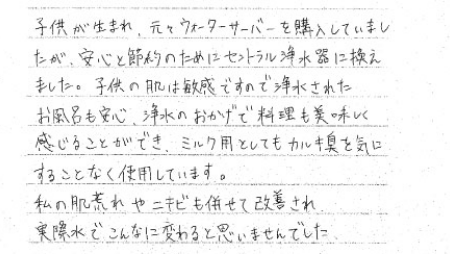 子供が生まれ、元々ウォーターサーバーを購入していまし
たが、安心と節約のためにセントラル浄水器に換え
ました。子供の肌は敏感ですので浄水された
お風呂も安心、浄水のおかげで料理も美味しく
感じることができ、ミルク用としてもカルキ臭を気に
することなく使用しています。
私の肌荒れやニキビも併せて改善され
実際水でこんなに変わると思いませんでした